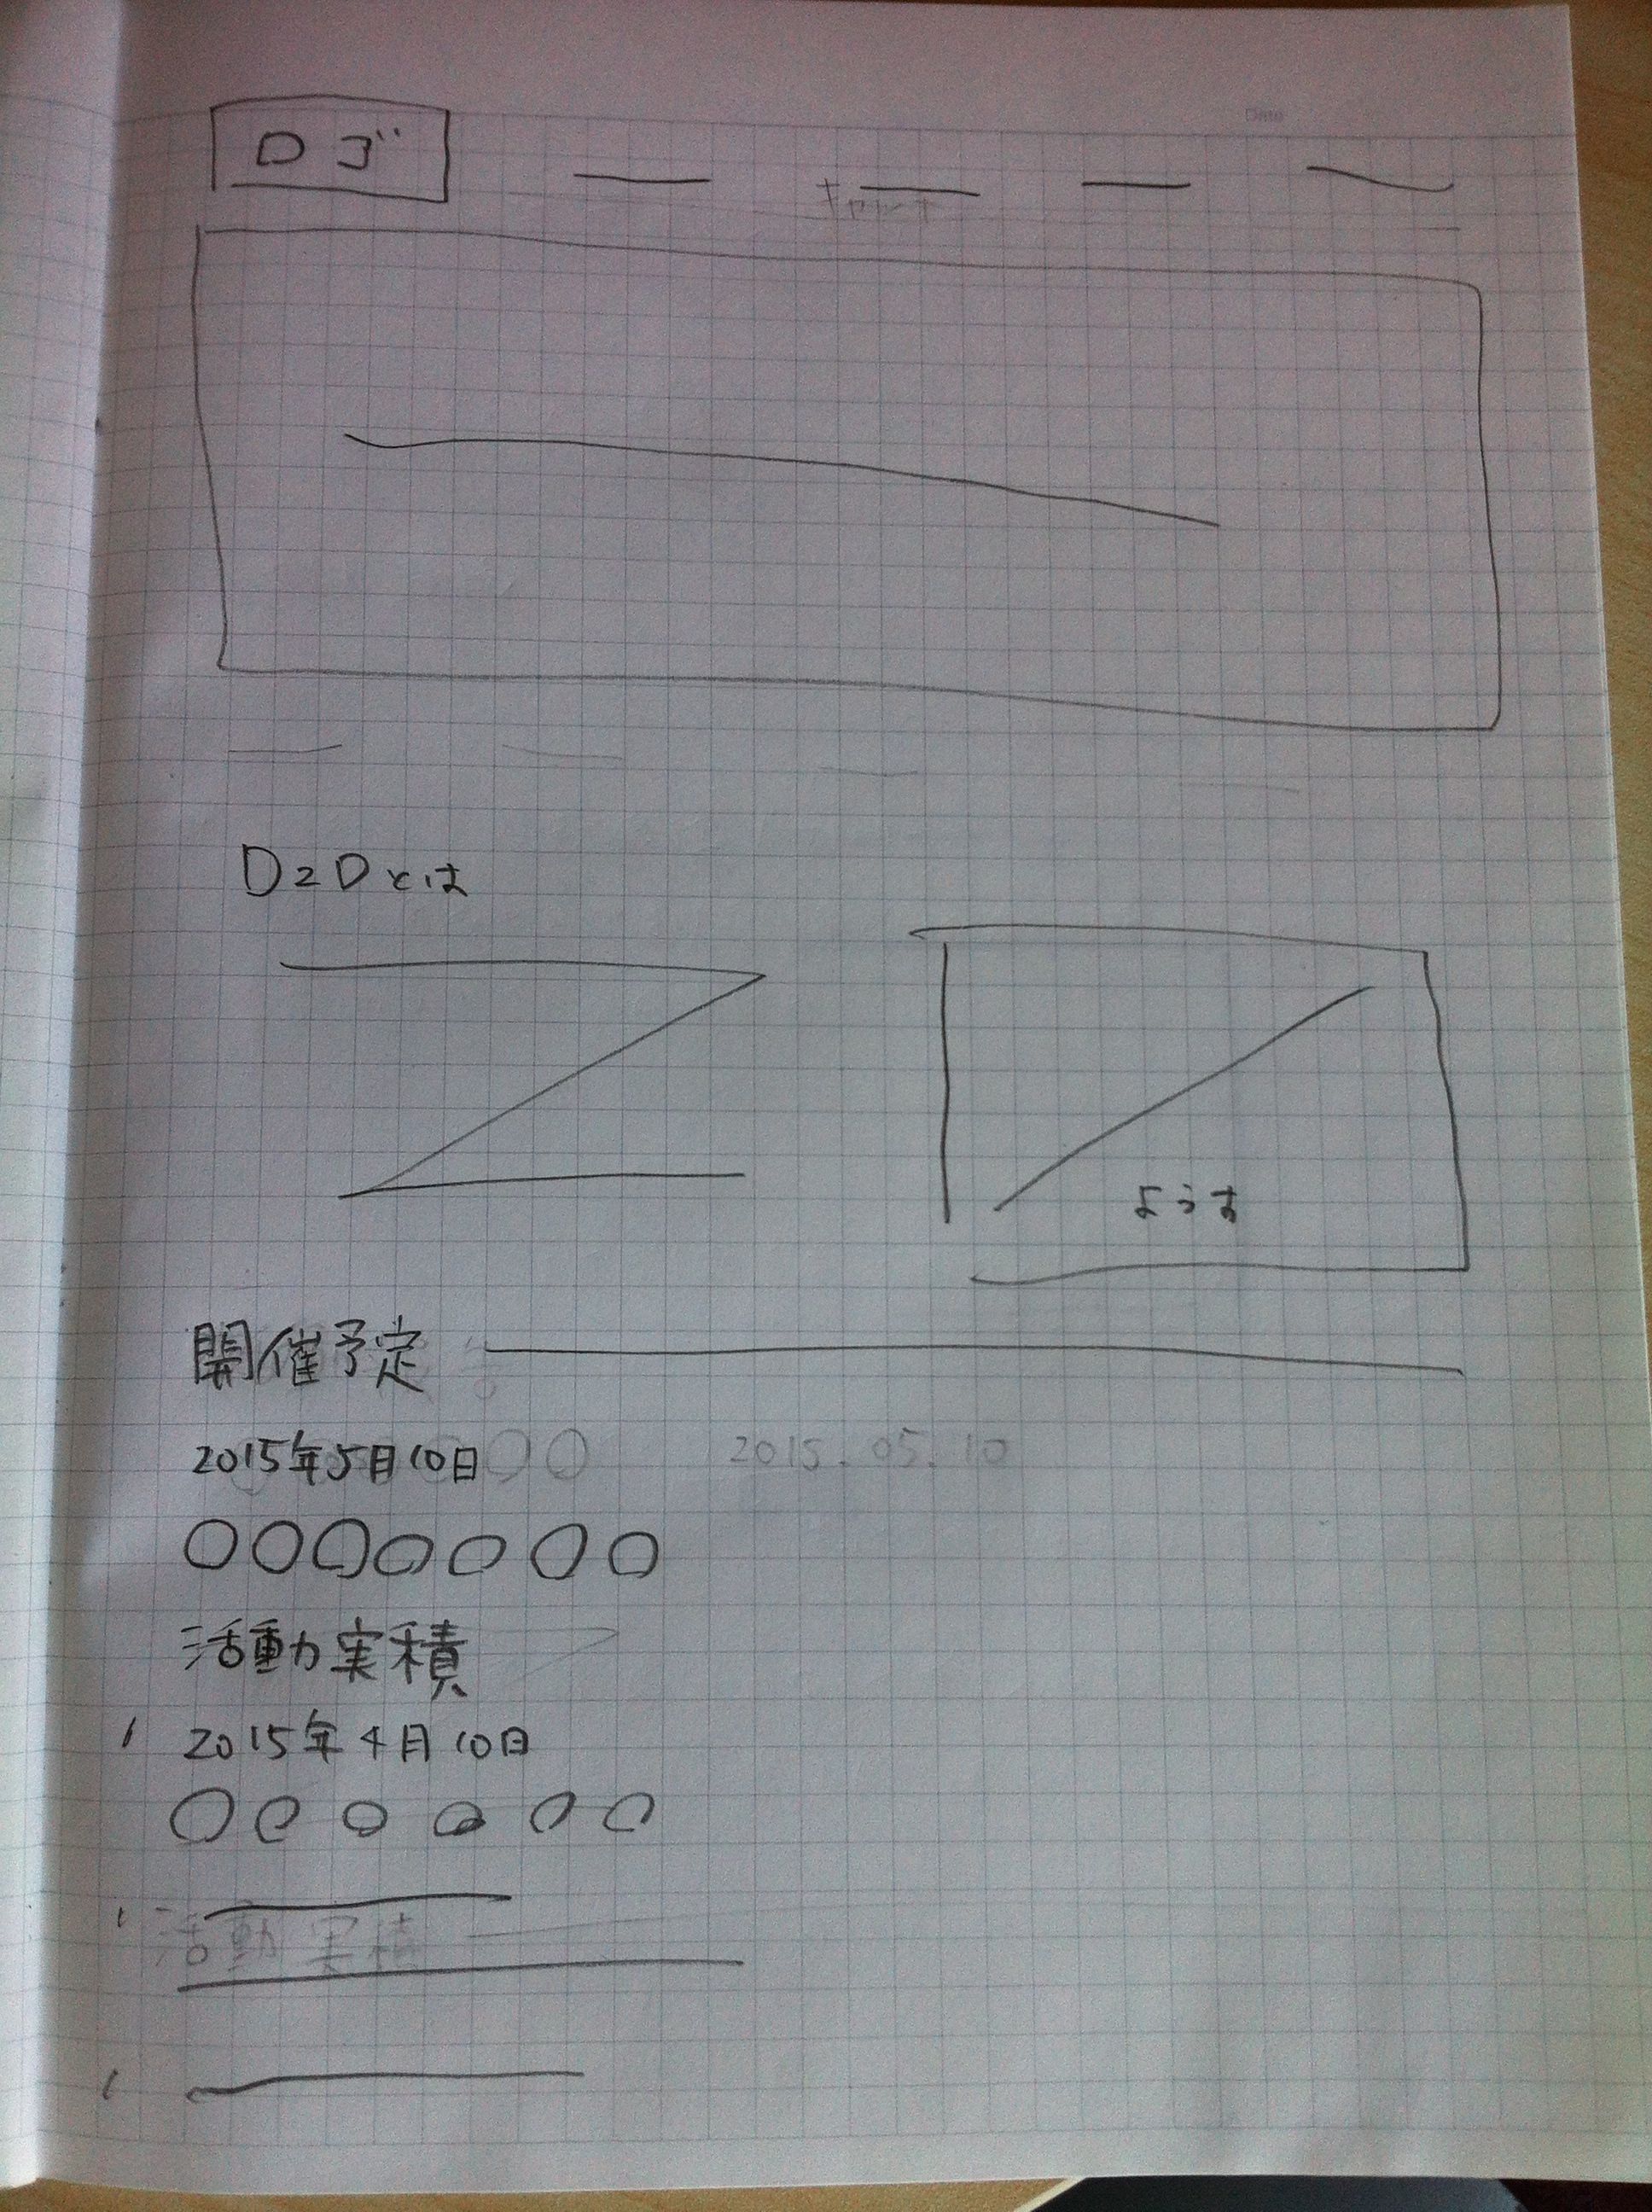 Date
ロゴ
D2Dとは
ようす
開催予定
2015年5月10日
2015.05.10
○○○○○○○
活動実積
2015年4月10日
○○○○○○
活動実積